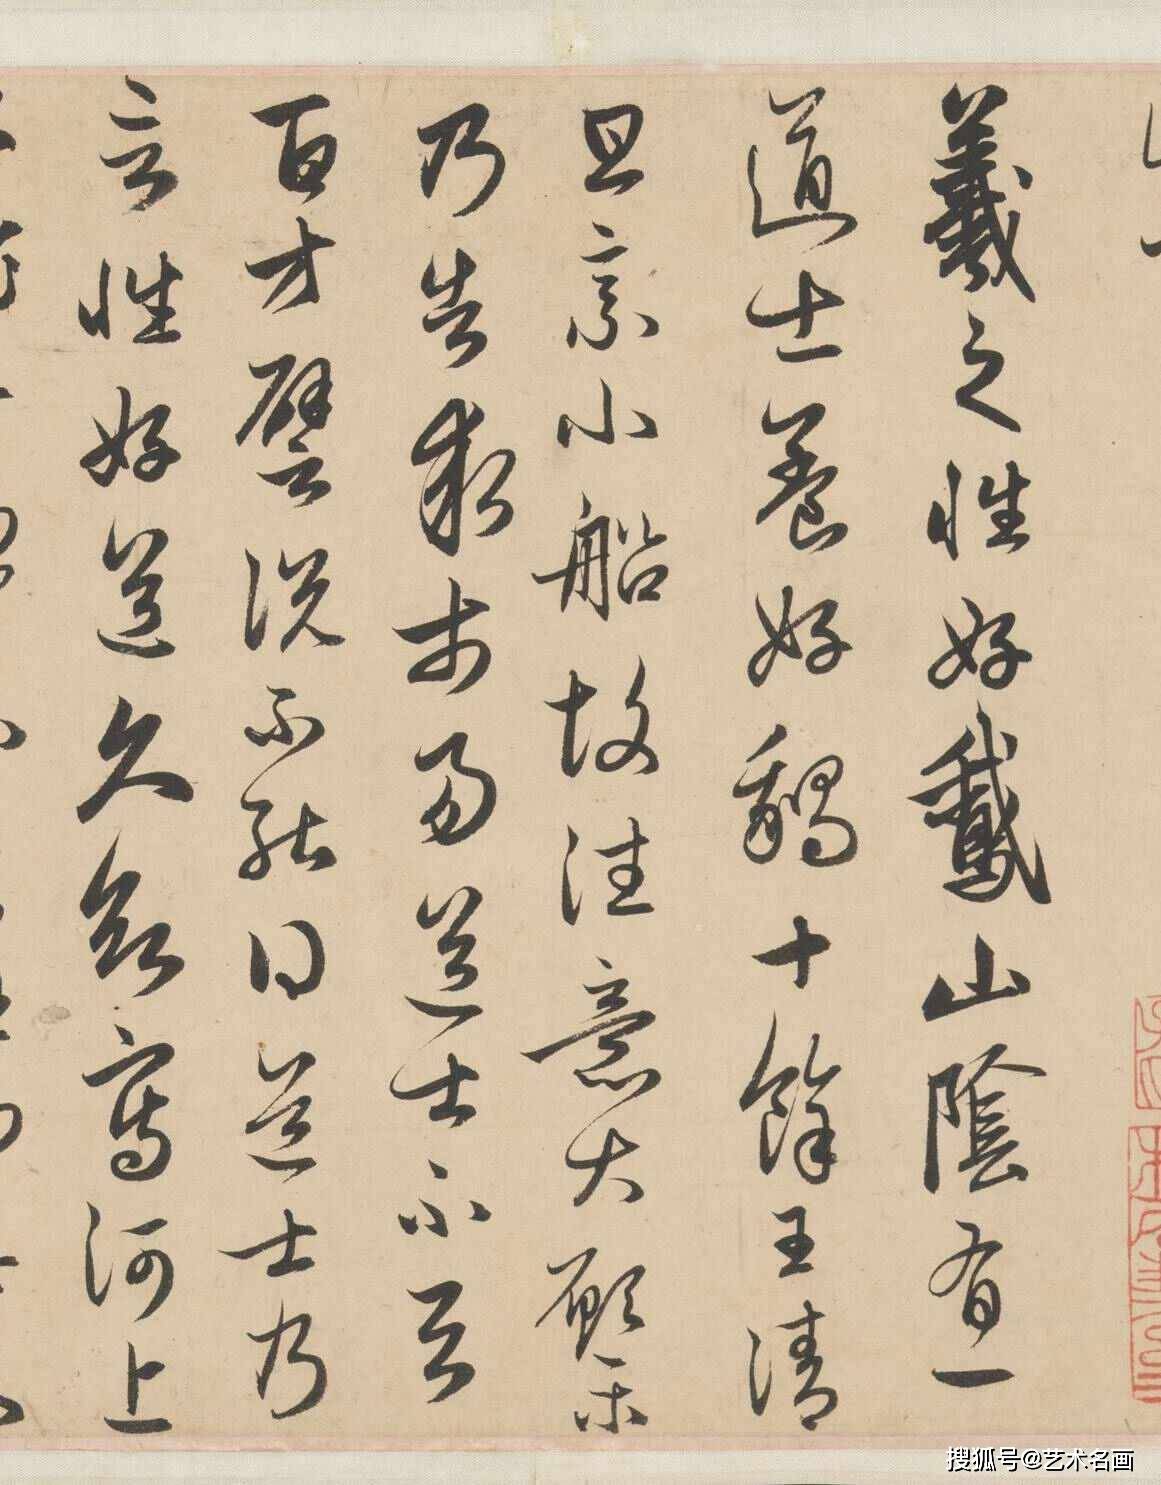 羲之性好鵞山陰有一
道士養好鵝十餘王清
旦乘小船故往意大願樂
乃告求市易道士不言
百方譬說不能得道士乃
言性好道久欲寫河上
搜狐号@艺术名画